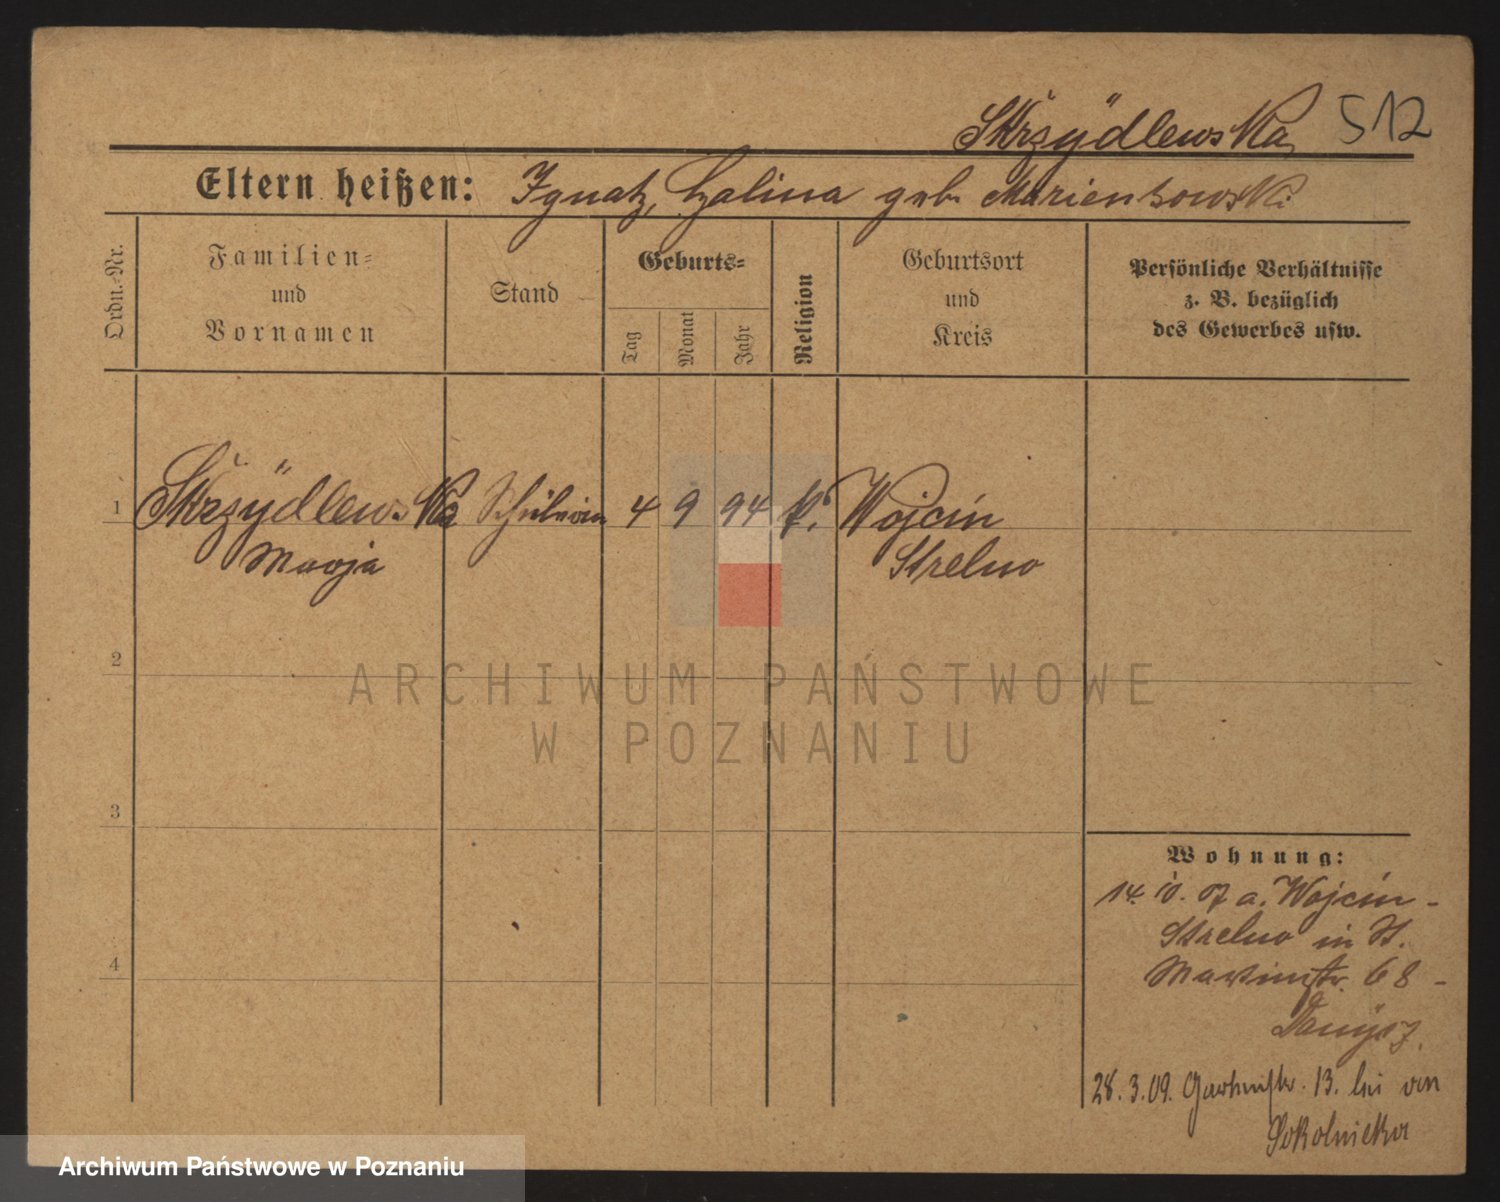 Skrzÿdlewska 512
Eltern heißen: Ignatz, Halina geb. Marienkowski
Ordn.-Nr.
Familien-
und
Vornamen
Stand
Geburts-
Tag
Monat
Jahr
Religion
Geburtsort
und
Kreis
Persönliche Verhältnisse
z. B. bezüglich
des Gewerbes usw.
1 Skrzÿdlewska Schülerin 4 9 94 k. Wojcin
Marja Strelno
2
ARCHIWUM PAŃSTWOWE
W POZNANIU
3
Wohnung:
14. 10. 07 a. Wojcin-
Strelno in St.
Martinstr. 68 -
4
Danÿsz.
28. 3. 09. Gartenstr. 13. bei von
Sokolnicka
Archiwum Państwowe w Poznaniu